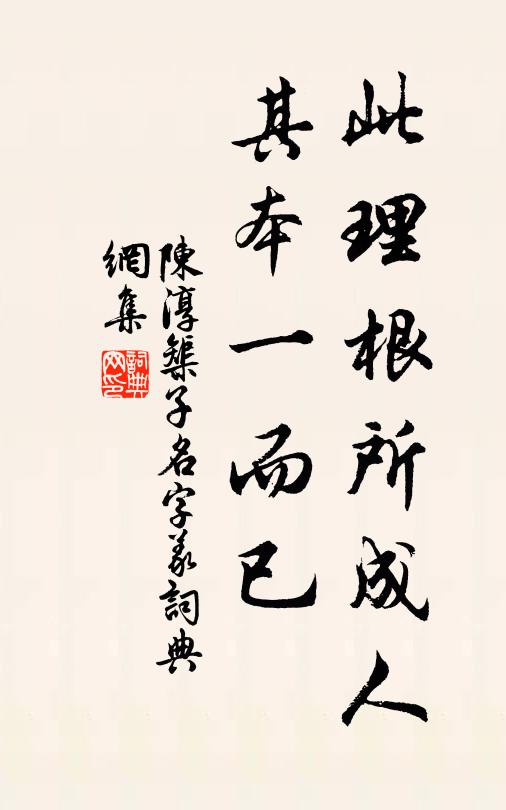 此理根所成人
其本一而已
陳淳築子名字義詞典
網集
詞典
网印